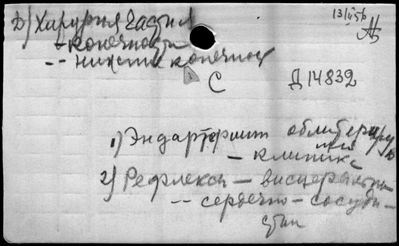 Д) Хирургия частная 13/II 56
- конечности
-- нижние конечност
С Д 14832
1) Эндартериит облитериру
ющий
- клиника
2) Рефлексы - висцеральн
-- сердечно - сосуди
стые